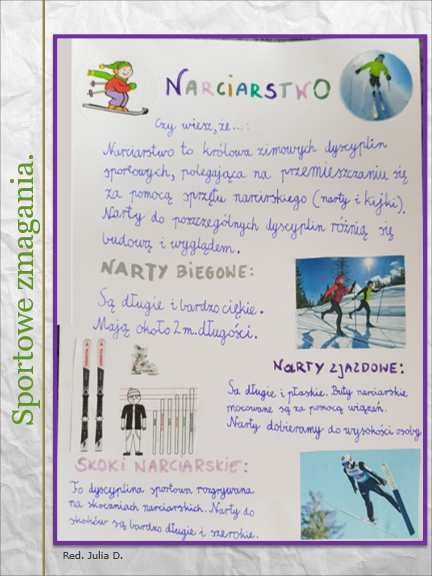 Sportowe zmagania.
NARCIARSTWO
Czy wiesz, że...:
Narciarstwo to królowa zimowych dyscyplin
sportowych, polegająca na przemieszczaniu się
za pomocą sprzętu narciarskiego (narty i kijki).
Narty do poszczególnych dyscyplin różnią się
budową i wyglądem.
NARTY BIEGOWE:
Są długie i bardzo ciękie.
Mają około 2 m. długości.
NARTY ZJAZDOWE:
Są długie i płaskie. Buty narciarskie
mocowane są za pomocą wiązań.
Narty dobieramy do wysokości osoby
SKOKI NARCIARSKIE:
To dyscyplina sportowa rozgrywana
na skoczniach narciarskich. Narty do
skoków są bardzo długie i szerokie.
Red. Julia D.